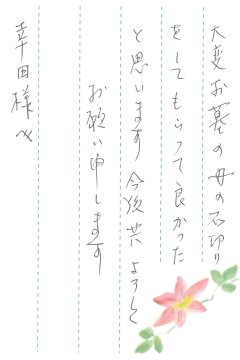 大変お墓の母の石切り
をしてもらって良かった
と思います今後共よろしく
お願い申します
幸田様へ